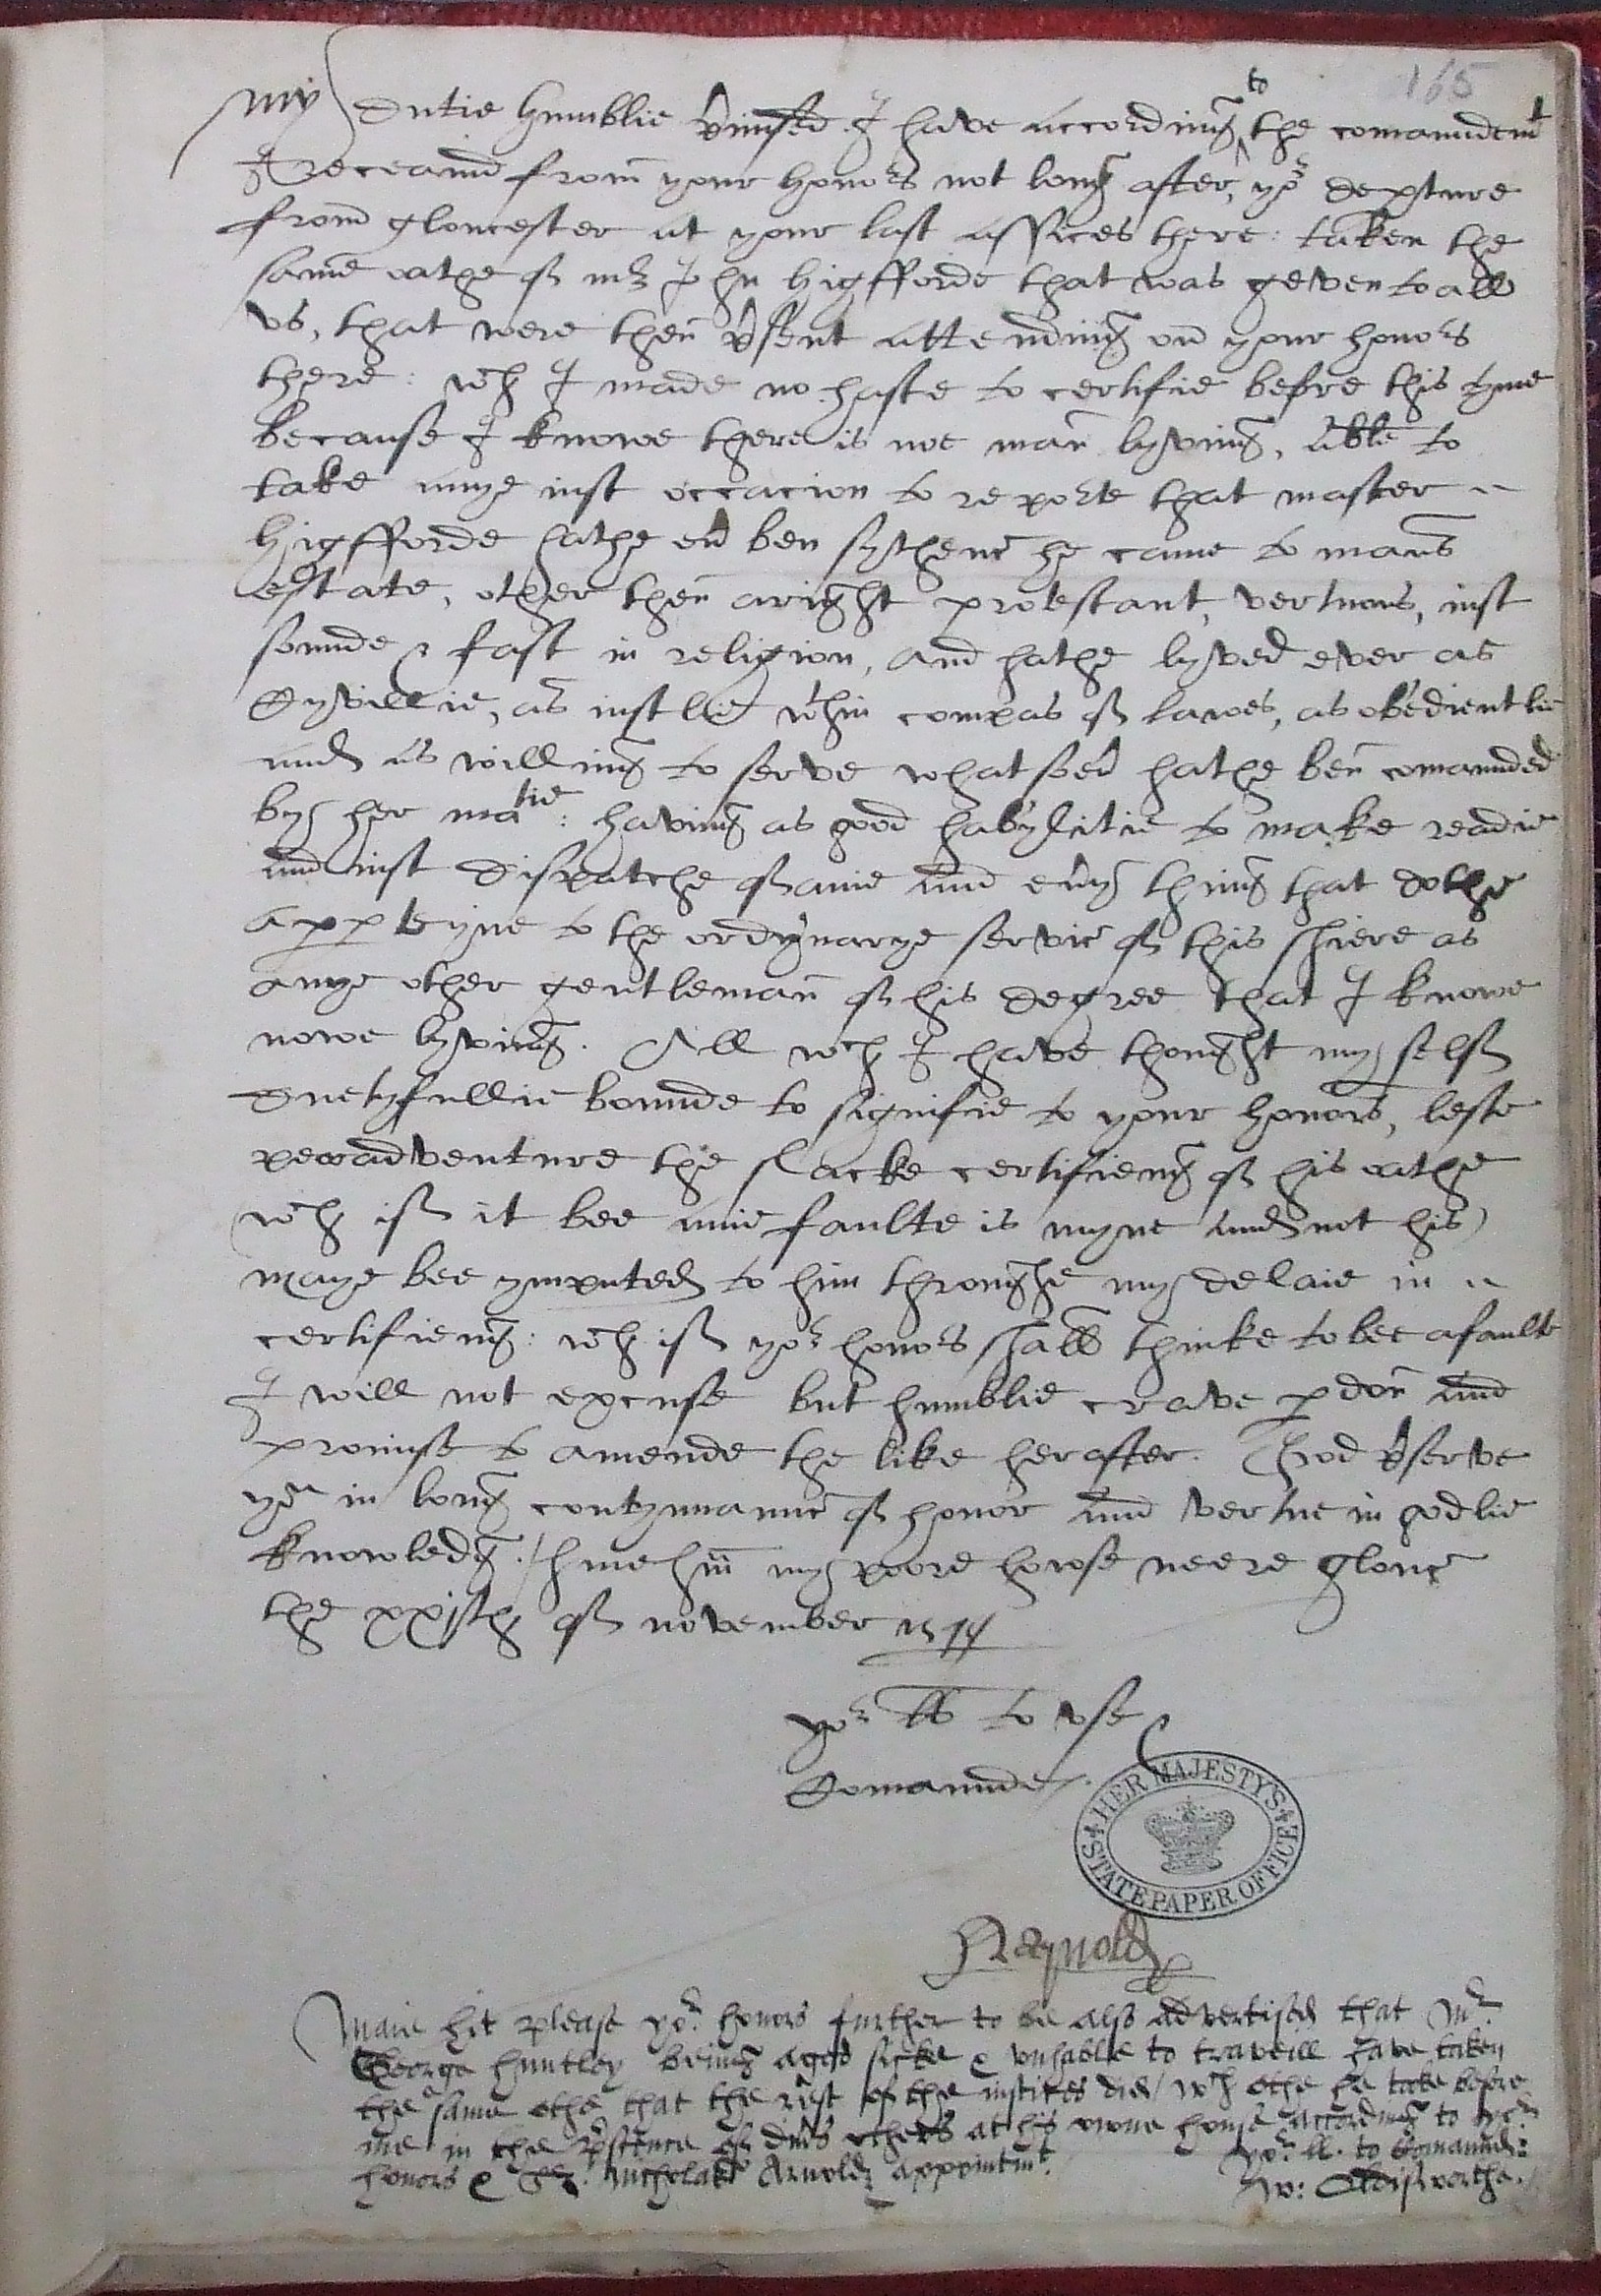 165
My dutie humblie p'mised. I have according to the comaundemt
I receaued from your honors not long after, yor depture
from gloucester at your last assices there: taken the
same oathe of mr John Higfforde that was geven to all
vs, that were then p'sent attending on your honors
there: wch I made no haste to certifie before this tyme
because I knowe there is noe man lyving, able to
take anye iust occacion to reporte that master
Higfforde hathe eu' ben sythenc he came to mans
estate, other then aright protestant, vertuous, iust
sounde & fast in religion, and hathe lyved ever as
Cyvillie, as iustlie wthin compas of lawes, as obedientlie
and as willing to serve whatsoeu' hathe ben comaunded
by her matie: having as good habylitie to make readie
and iust dispatche of anie and eu'y thing that dothe
apperteyne to the ordynarye servic of this shiere as
anye other gentleman of his degree that I knowe
nowe lyving. All wch I have thought my self
duetyfullie bounde to signifie to your honors, leste
peradventure the slacke certifieng of his oathe
wch if it bee anie faulte is myne and not his)
maye bee ymputed to him throughe my delaie in
certifieng: wch if yor honors shall thinke to bee afaulte
I will not excuse but humblie crave pdon and
promise to amende the like herafter. God p'serve
yo in long contynuannc of honor and vertue in godlie
knowledg. / hmehm my poore howse neere glouc
the xxjth of november 1577
yor ll to vse
Comaunde /.
HER MAJESTY'S STATE PAPER OFFICE
RArnold
Maie hit please yor honors further to be also advertised that Mr
George Huntley being aged sicke & vnhable to traveill have taken
the same othe that the rest of the iustices did / wch othe he toke before
me in the p'sence of diu's others at his owne house according to yor
honors & Sr. Nicholas Arnolds appointmt.
yor ll. to Comaund:
W: Oldisworthe.